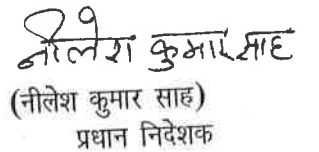 नीलेश कुमार साह
(नीलेश कुमार साह)
प्रधान निदेशक